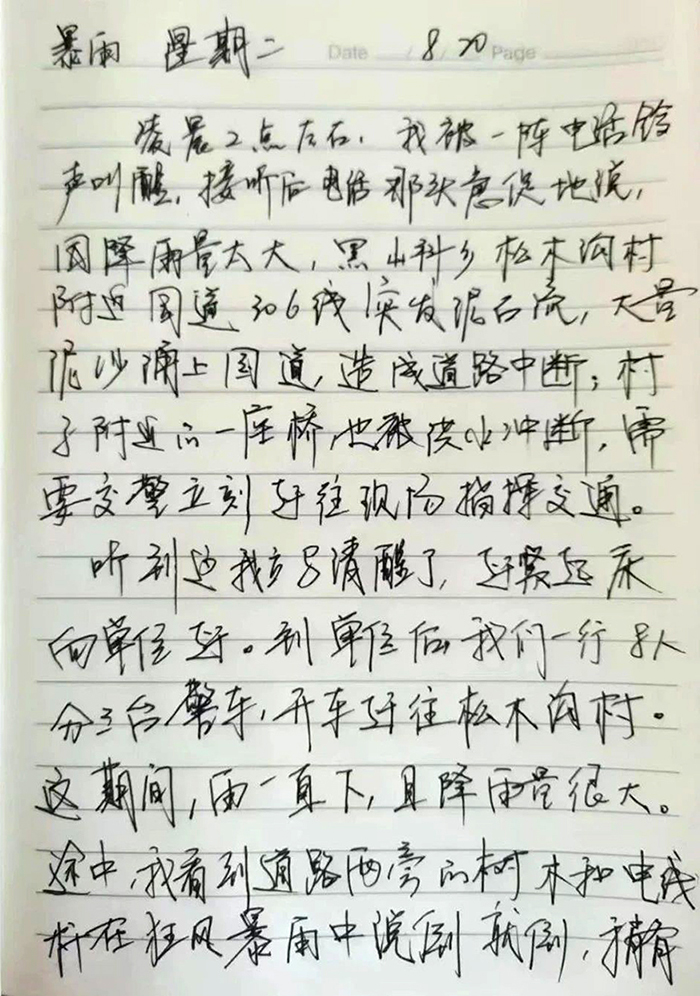 暴雨 星期二 Date / / 8 20 Page
凌晨2点左右,我被一阵电话铃
声叫醒,接听后电话那头急促地说,
因降雨量太大,黑山科乡松木沟村
附近国道306线突发泥石流,大量
泥沙涌上国道,造成道路中断;村
子附近的一座桥,也被洪水冲断,需
要交警立刻赶往现场指挥交通。
听到这我立马清醒了,赶紧起床
向单位赶。到单位后我们一行8人
分三台警车,开车赶往松木沟村。
这期间,雨一直下,且降雨量很大。
途中,我看到道路两旁的树木和电线
杆在狂风暴雨中说倒就倒,稍有